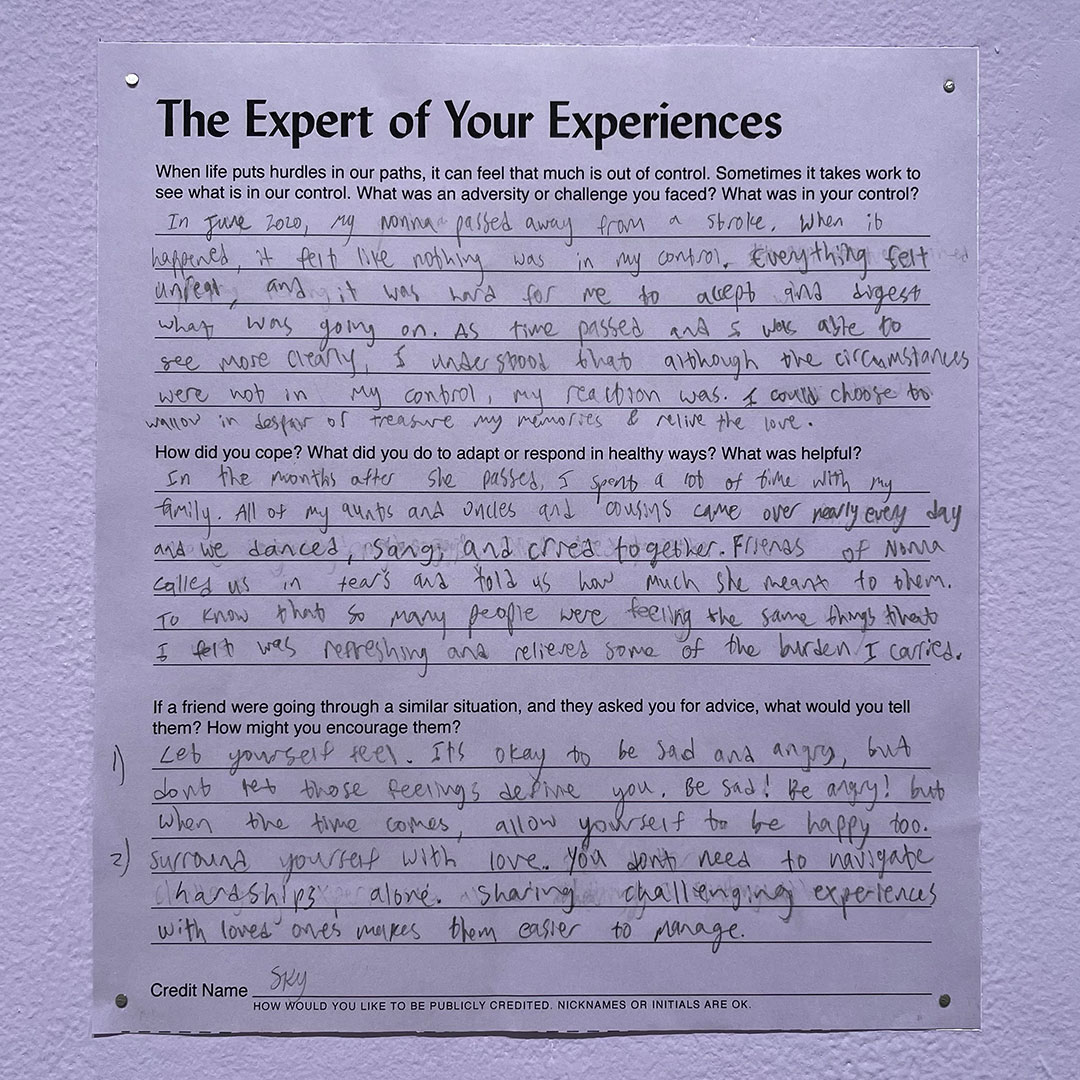 The Expert of Your Experiences
When life puts hurdles in our paths, it can feel that much is out of control. Sometimes it takes work to
see what is in our control. What was an adversity or challenge you faced? What was in your control?
In June 2020, my nonna passed away from a stroke. When it
happened, it felt like nothing was in my control. Everything felt
unreal, and it was hard for me to accept and digest
what was going on. As time passed and I was able to
see more clearly, I understood that although the circumstances
were not in my control, my reaction was. I could choose to
wallow in despair or treasure my memories & relive the love.
How did you cope? What did you do to adapt or respond in healthy ways? What was helpful?
In the months after she passed, I spent a lot of time with my
family. All of my aunts and uncles and cousins came over nearly every day
and we danced, sang, and cried together. Friends of Nonna
called us in tears and told us how much she meant to them.
To know that so many people were feeling the same things that
I felt was refreshing and relieved some of the burden I carried.
If a friend were going through a similar situation, and they asked you for advice, what would you tell
them? How might you encourage them?
1) Let yourself feel. Its okay to be sad and angry, but
dont let those feelings define you. Be sad! Be angry! but
when the time comes, allow yourself to be happy too.
2) Surround yourself with love. You dont need to navigate
hardships alone. Sharing challenging experiences
with loved ones makes them easier to manage.
Credit Name Sky
HOW WOULD YOU LIKE TO BE PUBLICLY CREDITED. NICKNAMES OR INITIALS ARE OK.